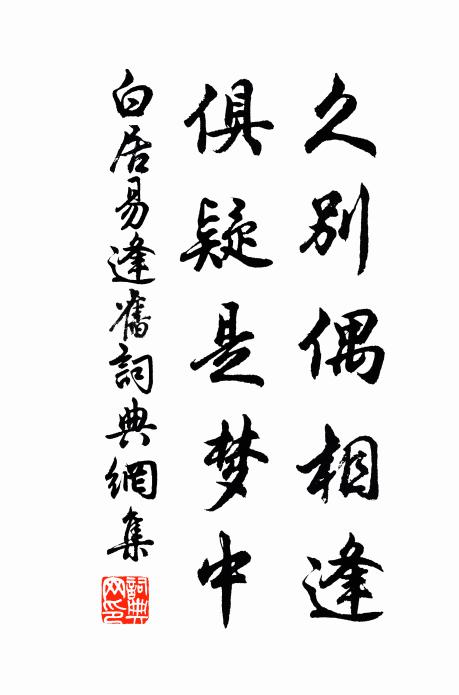 久别偶相逢
俱疑是梦中
白居易逢舊詞典網集
詞典
网印